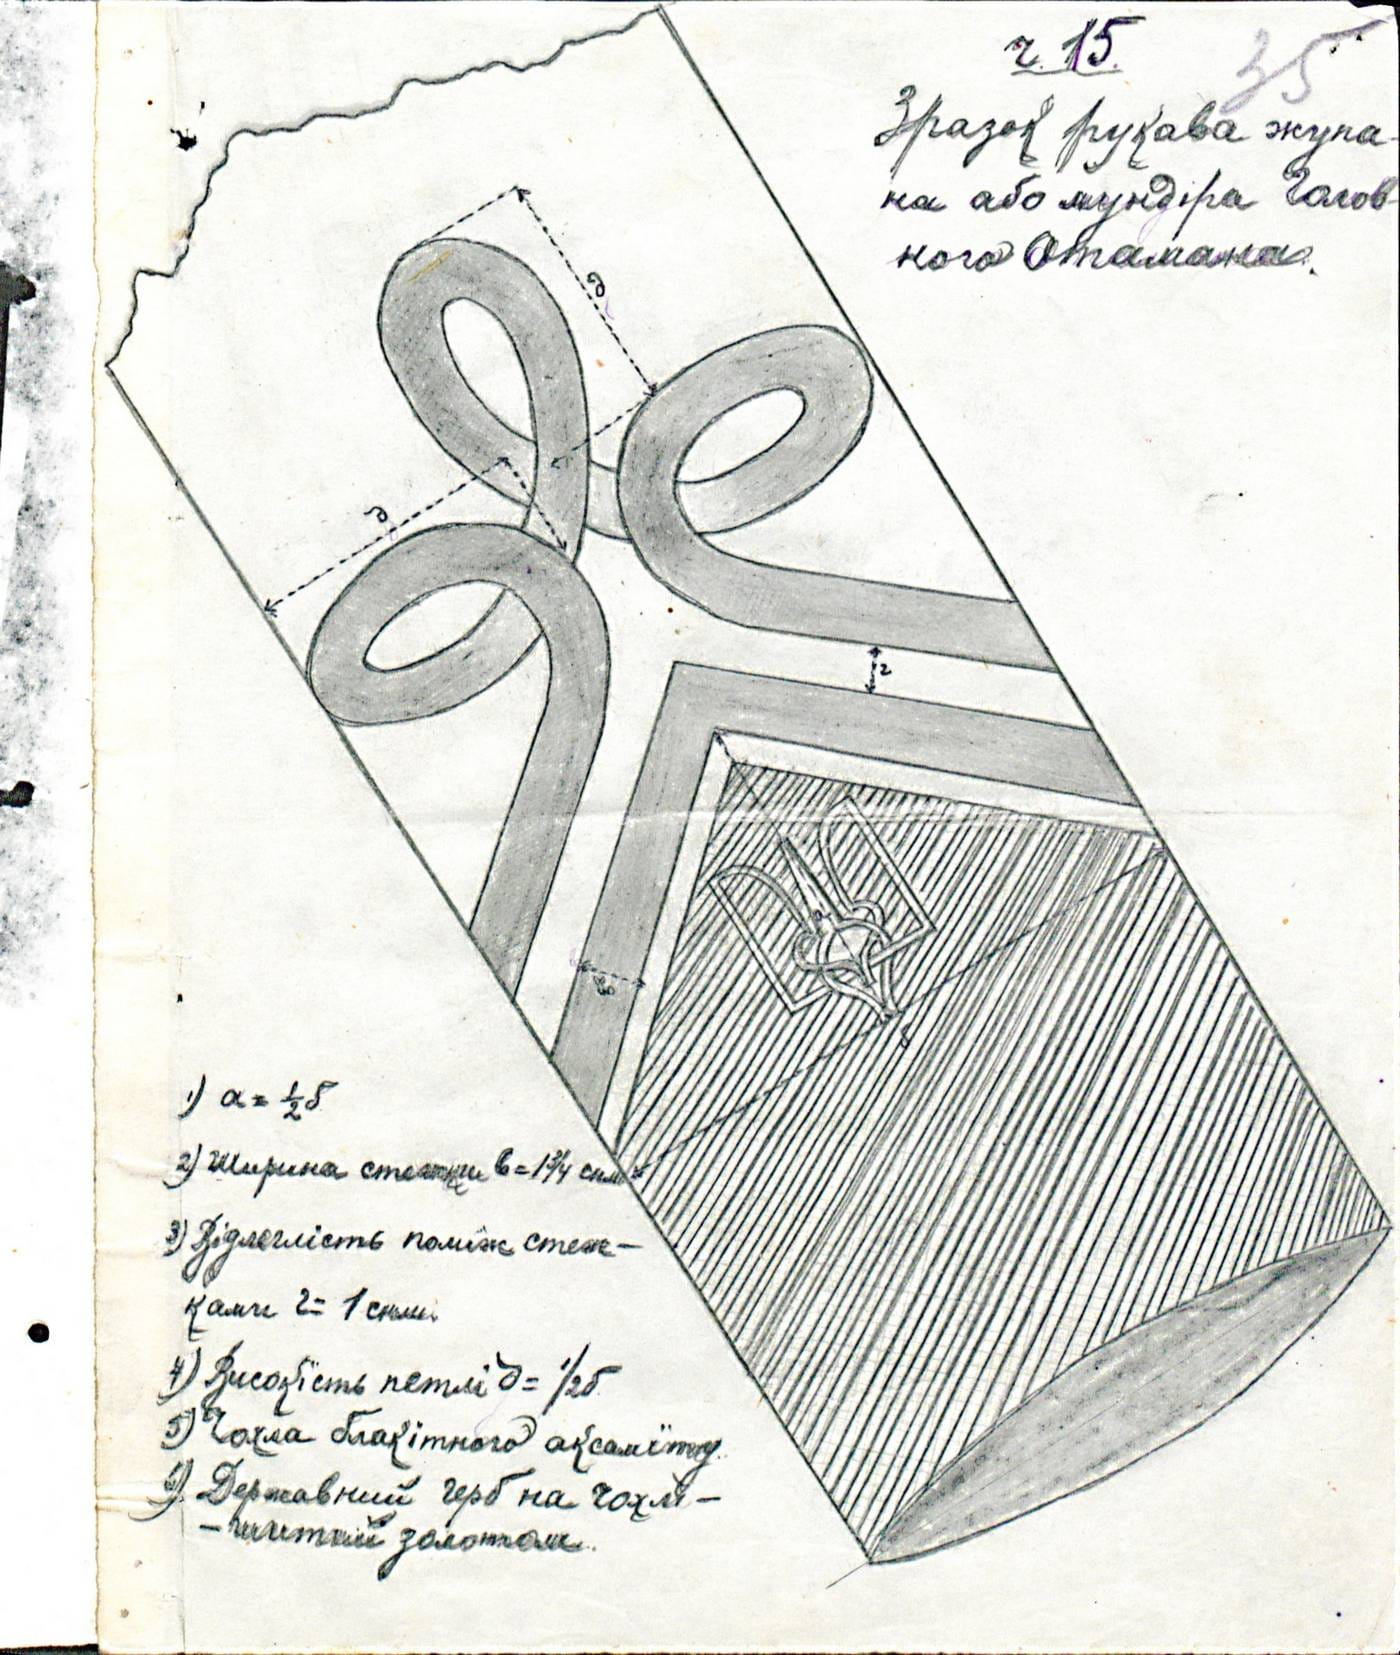 ч. 15.
35
Зразок рукава жупа-
на або мундіра Голов-
ного Отамана.
д
д
г
в
а
б
1) а = ½ б
2) Ширина стежки в = 1¾ снм
3) Відлеглість поміж стеж-
ками г = 1 снм.
4) Височість петлі д = 1/2 б.
5) Чохла блакітного аксаміту.
6) Державний герб на чохлі –
– шитий золотом.